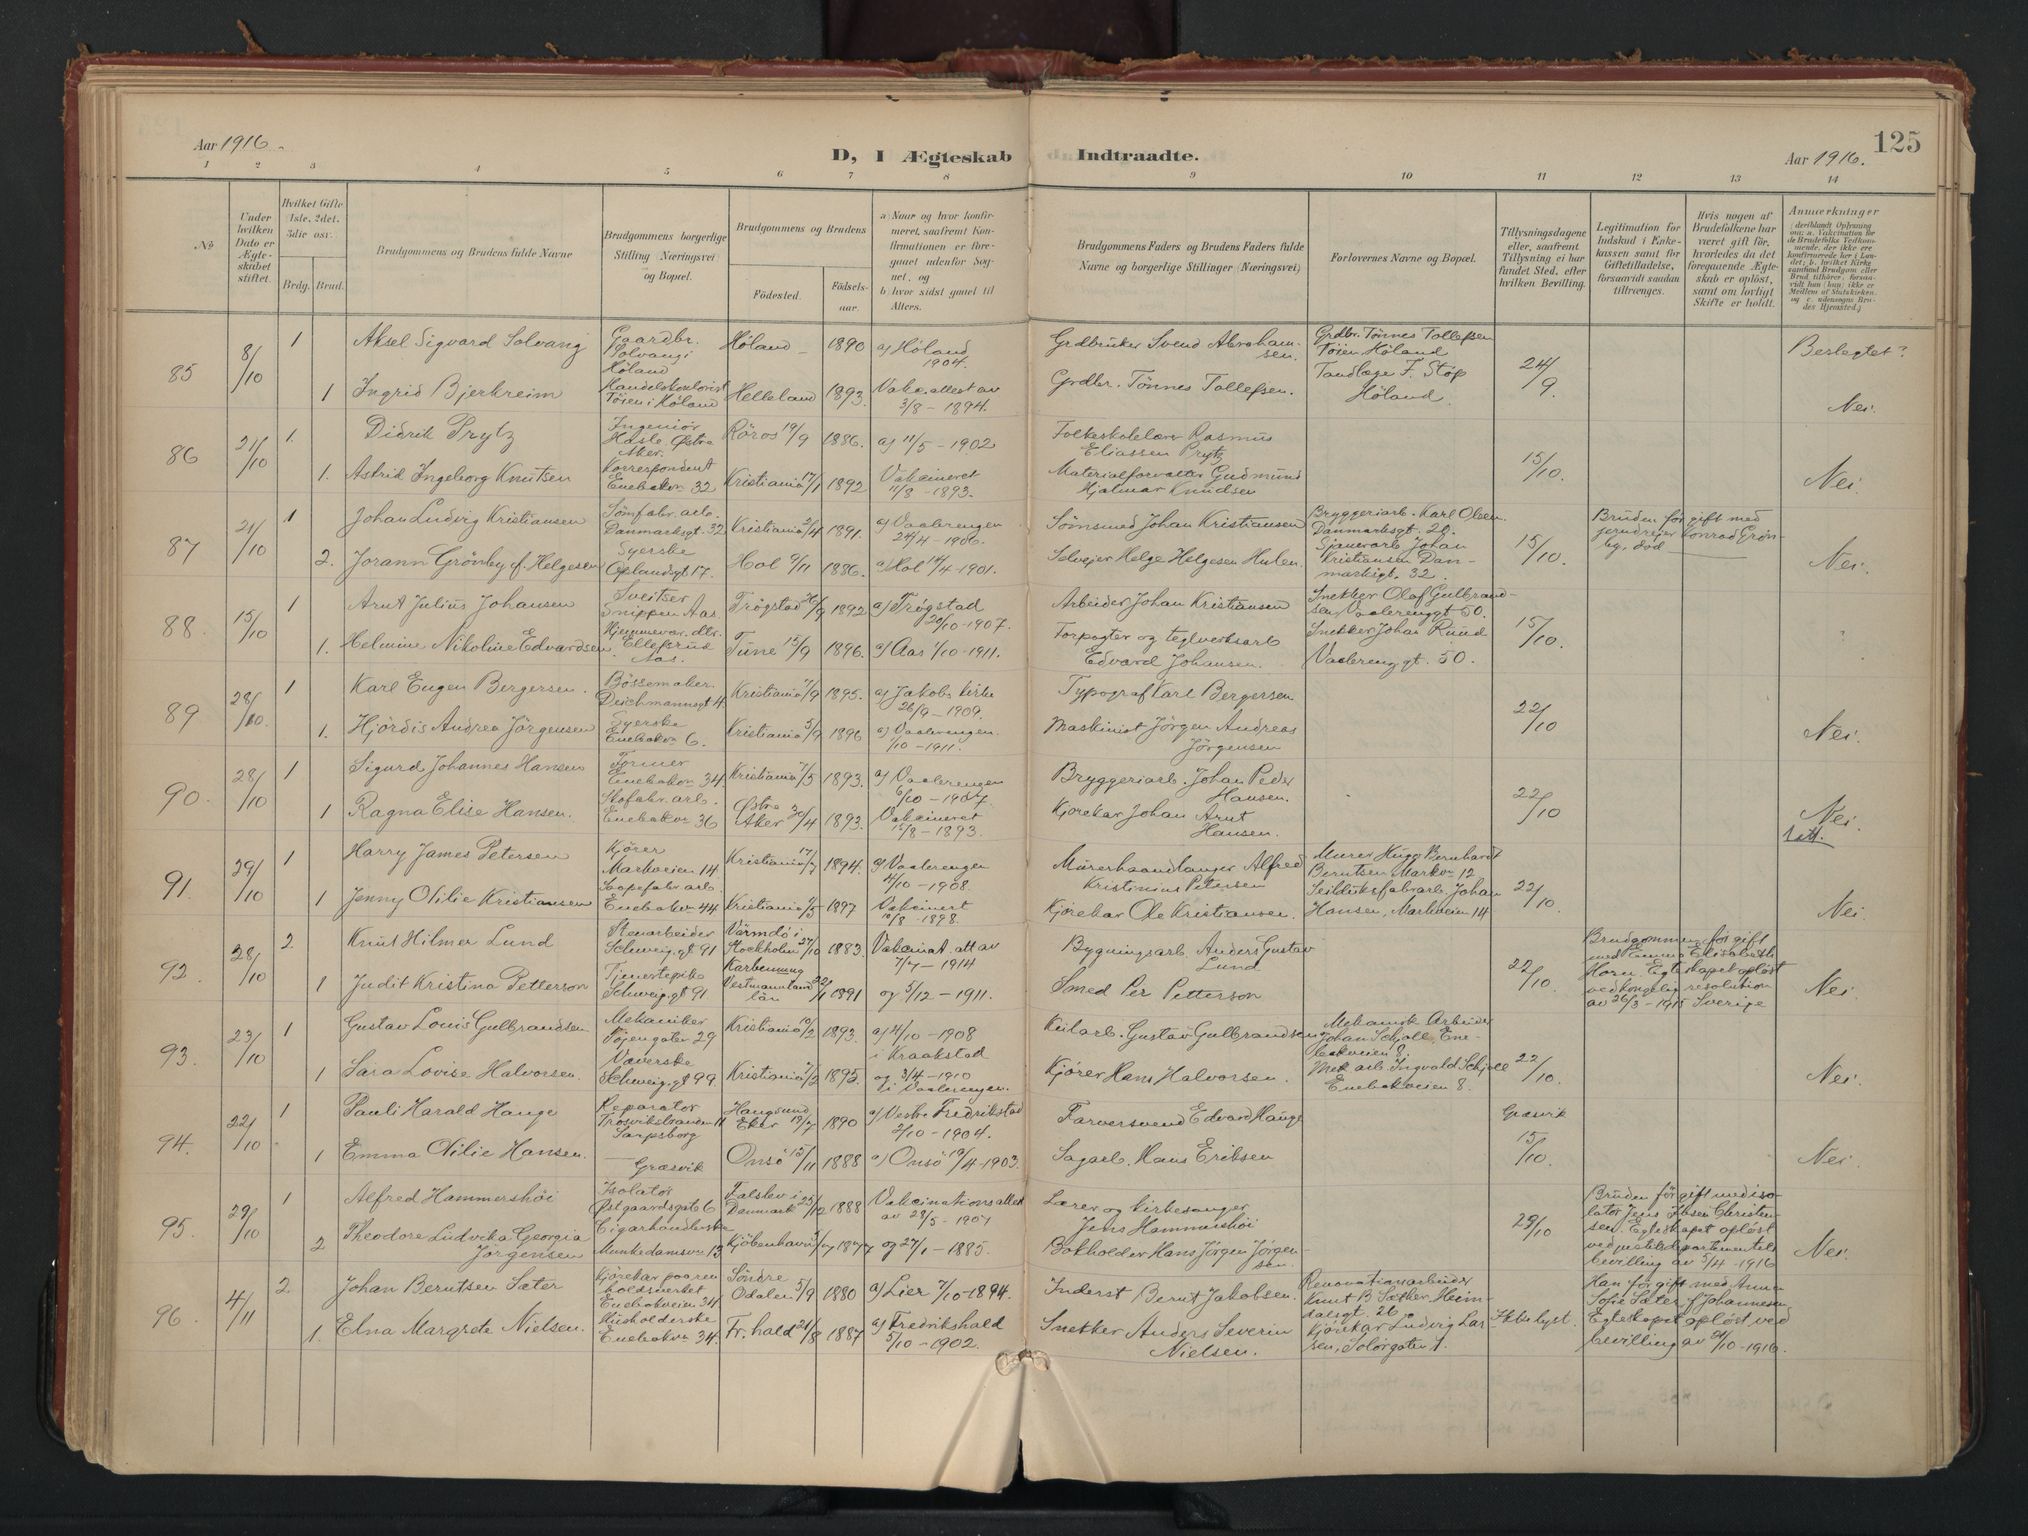 Aar 1916.
D, I Ægteskab Indtraadte.
125
Aar 1916.
1 2 3 4 5 6 7 8 9 10 11 12 13 14
No
Under hvilken Dato er Ægteskabet stiftet.
Hvilket Gifte 1ste, 2det, 3die osv.
Brdg. Brud.
Brudgommens og Brudens fulde Navne
Brudgommens borgerlige Stilling (Næringsvei) og Bopæl.
Brudgommens og Brudens
Fødested. Fødsels-aar.
a) Naar og hvor konfirmeret, saafremt Konfirmationen er foregaaet udenfor Sognet, og
b) hvor sidst gaaet til Alters.
Brudgommens Faders og Brudens Faders fulde Navne og borgerlige Stillinger (Næringsvei)
Forlovernes Navne og Bopæl.
Tillysningsdagene eller, saafremt Tillysning ei har fundet Sted, efter hvilken Bevilling.
Legitimation for Indskud i Enkekassen samt for Giftetilladelse, forsaavidt saadan tiltrænges.
Hvis nogen af Brudefolkene har været gift før, hvorledes da det foregaaende Ægteskab er opløst, samt om lovligt Skifte er holdt.
Anmærkninger
(deriblandt Oplysning om: a. Vaksination for de Brudefolks Vedkommende, der ikke ere konfirmerede her i Landet; b. hvilket Kirkesamfund Brudgom eller Brud tilhører, forsaavidt han (hun) ikke er Medlem af Statskirken, og c. udensogns Brudes Hjemsted.)
85 8/10 1 Aksel Sigvard Solvang Gaardbr. Solvang i Høland Høland 1890 a) Høland 1904. Grdbruker Svend Abrahamsen. Grdbr. Tønnes Tollefsen Tøien Høland 24/9 Beslegtet?
1 Ingrid Bjerkreim Handelskontorist Tøien i Høland Helleland 1893. Vakc. attest av 3/8 - 1894. Grdbr. Tønnes Tollefsen. Tandlæge F. Støp Høland. Nei.
86 21/10 1. Didrik Prytz Ingeniør Hasle Østre Aker. Røros 19/9 1886. a) 11/5 - 1902 Folkeskolelærer Rasmus Eliassen Prytz 15/10.
1. Astrid Ingeborg Knutsen Korrespondent Enebakvn 32 Kristiania 17/1 1892 Vakcineret 11/8 - 1893. Materialforvalter Gudmund Hjalmar Knudsen Nei.
87 21/10 1 Johan Ludvig Kristiansen Sømfabr. arb. Danmarksgt. 32 Kristiania 2/4 1891. a) Vaalerengen 24/4 - 1906. Sømsmed Johan Kristiansen Bryggeriarb. Karl Olsen Danmarksgt. 20. 15/10. Bruden før gift med Konrad Grønby, død
2. Jorann Grønby f. Helgesen Syerske Oplandsgt 17. Hol 9/11 1886. a) Hol 14/4 - 1901. Selveier Helge Helgesen Hulen. Sjauerarb Johan Kristiansen Danmarksgt. 32. Nei.
88. 15/10 1 Arnt Julius Johansen Sveitser Snippen Aas Trøgstad 26/9 1892 a) Trøgstad 20/10 - 1907. Arbeider Johan Kristiansen Snekker Olaf Gulbrandsen Vaalerenggt 50. 15/10. ?
1. Helmine Nikoline Edvardsen Hjemmevær. dtr. Ellefsrud Aas. Tune 15/9 1896. a) Aas 1/10 - 1911. Forpagter og teglverksarb Edvard Johansen. Snekker Johan Ruud Vaalerenggt. 50.
89 28/10 1 Karl Eugen Bergersen. Bøssemaker. Deichmannsgt 4. Kristiania 7/9 1895. a) Jakobs kirke 26/9 - 1909. Typograf Karl Bergersen 22/10
1. Hjördis Andrea Jörgensen Syerske Enebakvn 6. Kristiania 5/9 1896 a) Vaalerengen. 1/10 - 1911. Maskinist Jörgen Andreas Jörgensen Nei.
90. 28/10 1 Sigurd Johannes Hansen Former Enebakvn 34 Kristiania 7/5 1893. a) Vaalerengen 6/10 - 1907. Bryggeriarb. Johan Peder Hansen. 22/10
1 Ragna Elise Hansen. Skofabr. arb. Enebakvn 36 Østre Aker 30/4 1893. Vakcineret 15/8 - 1893. Kjørekar Johan Arnt Hansen. Nei.
91. 29/10 1 Harry James Petersen Kjører Markveien 14 Kristiania 17/7 1894. a) Vaalerengen 4/10 - 1908. Murerhaandlanger Alfred Kristinius Petersen Murer Hugo Bernhardt Berntsen Markvn 12 22/10.
1 Jenny Otilie Kristiansen Saapefabr. arb. Enebakvn 44 Kristiania 7/3 1897 Vakcinert 10/8 - 1898. Kjørekar Ole Kristiansen. Seildüksfabr arb. Johan Hansen, Markveien 14 Nei.
92. 28/10 2. Knut Hilmer Lund Stenarbeider Schweig. gt 91 Värmdö i Stockholm 27/10 1883. Vakcinat. att av 7/7 - 1914 Bygningsarb. Anders Gustav Lund 22/10. Brudgommen før gift med Emma Elisabeth Horn. Egteskapet opløst ved kongelig resolution av 26/3 - 1915 Sverige
1 Judit Kristina Petterson Tjenestepike Schweig. gt 91 Karbenning Vestmannland län 22/1 1891 og 5/12 - 1911. Smed Per Petterson Nei.
93. 23/10 1 Gustav Louis Gulbrandsen Mekaniker Tøjengaten 29 Kristiania 10/2 1893. a) 4/10 - 1908 i Kraakstad Keilarb. Gustav Gulbrandsen Mekanisk Arbeider Johan Schjoll Enebakveien 8. 22/10.
1 Sara Lovise Halvorsen. Væverske Schweig. gt 99 Kristiania 7/2 1895. og 3/4 - 1910 i Vaalerengen. Kjører Hans Halvorsen. Mek arb. Ingvald Schjoll Enebakveien 8. Nei.
94. 22/10 1 Pauli Harald Hauge Reparatør Trosvikstranden 11 Sarpsborg Haugsund Eker 19/7 1890 a) Vestre Fredrikstad 2/10 - 1904. Farversvend Edvard Hauge Græsvik 15/10.
1 Emma Otilie Hansen. Græsvik Onsö 15/11 1888 a) Onsö 19/4 - 1903. Sagarb. Hans Eriksen Nei.
95. 29/10 1 Alfred Hammershöi Isolatør Østgaardsgate 6 Falslev i Danmark 25/12 1888 Vakcinationsattest av 28/5 - 1907 Lærer og kirkesanger Jens Hammershöi 29/10 Bruden før gift med isolatør Jens Christensen. Egteskapet opløst ved justitsdepartementets bevilling av 5/4 - 1916
2 Theodore Ludvika Georgia Jørgensen Cigarhandlerske Munkedamsvn 13 Kjöbenhavn 3/7 1877 og 27/1 - 1885. Bokholder Hans Jörgen Jörgensen. Nei.
96. 4/11 2 Johan Berntsen Sæter Kjørekar paa renholdsverket Enebakveien 34 Söndre Odalen 5/9 1880 a) Lier 7/10 - 1894. Inderst Bernt Jakobsen. Renovationsarbeider Knut B Sæther, Heimdalsgt. 26 Ikke lyst. Han før gift med Anna Sofie Sæter f Johannesen Egteskapet opløst ved bevilling av 21/10 - 1916
1. Elna Margrete Nielsen. Husholderske Enebakvn 34. Fr. hald 21/8 1887 a) Fredrikshald 5/10 - 1902. Snekker Anders Severin Nielsen. Kjørekar Ludvig Larsen, Solørgaten 1.